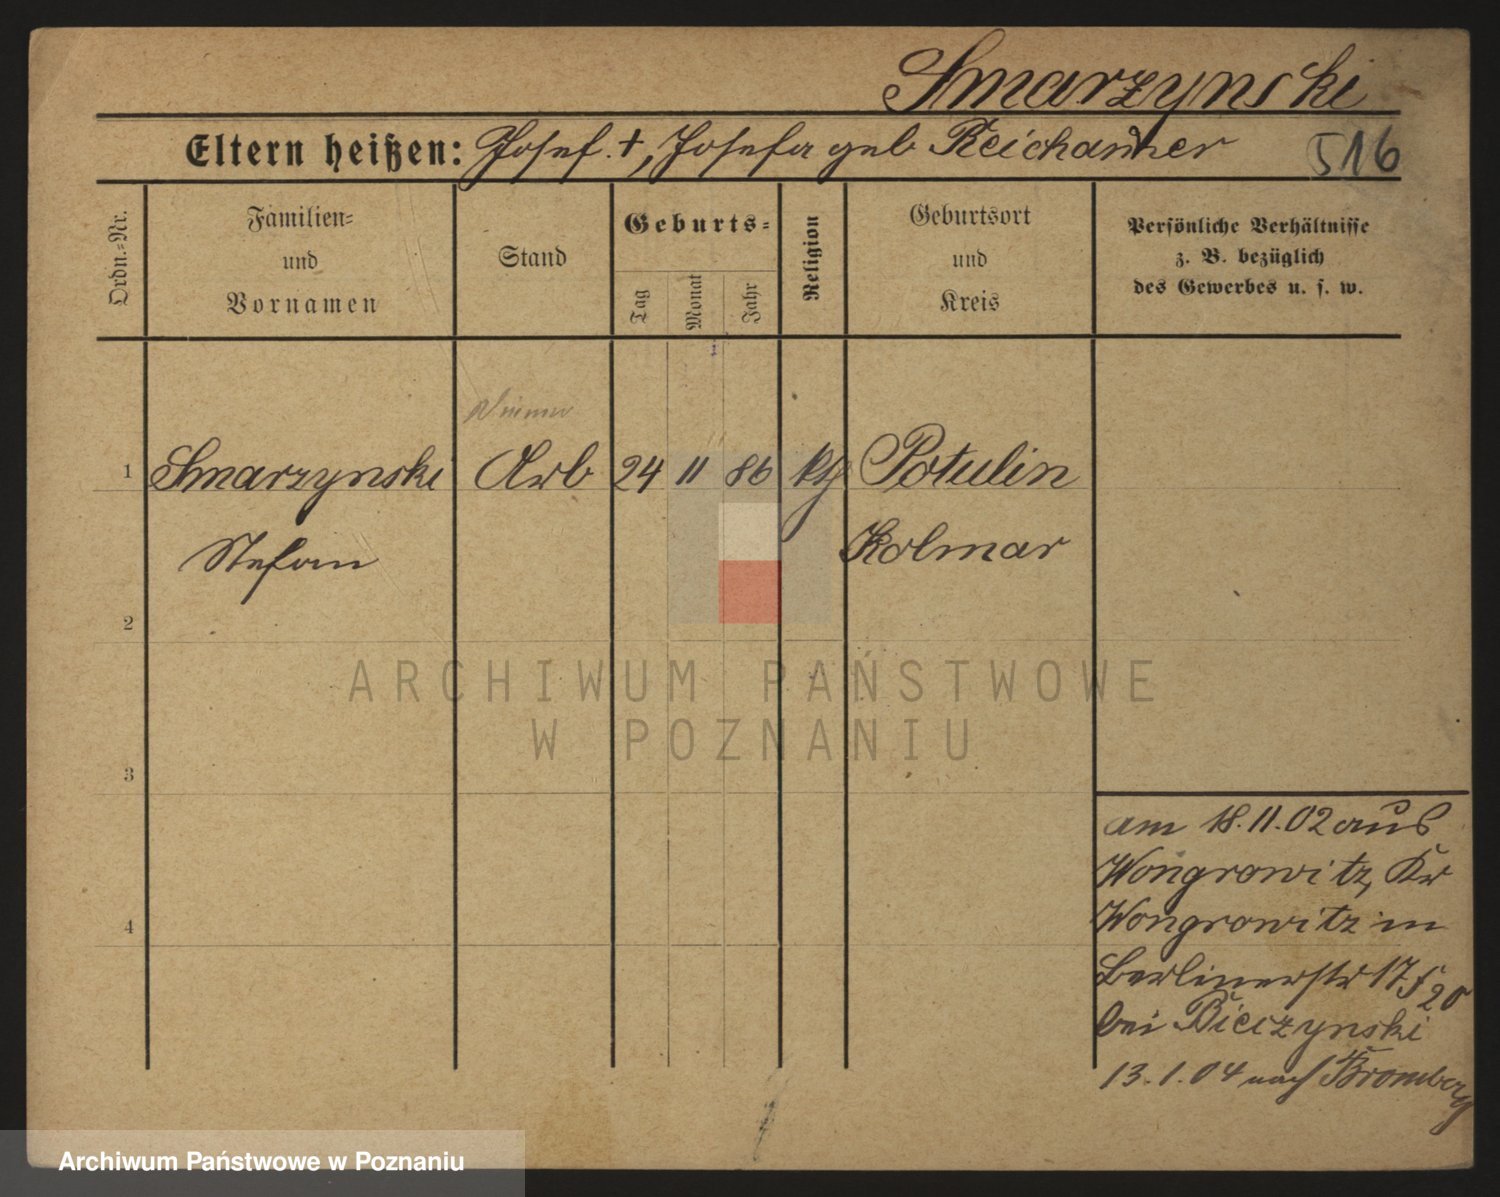 Smarzynski
Eltern heißen: Josef †, Josefa geb Reichander
516
Ordn.-Nr.
Familien-
und
Vornamen
Stand
Geburts-
Tag
Monat
Jahr
Religion
Geburtsort
und
Kreis
Persönliche Verhältnisse
z. B. bezüglich
des Gewerbes u. s. w.
1 Smarzynski Arb 24 11 86 kth Potulin
Stefan Kolmar
2
3
4
am 18.11.02 aus
Wongrowitz, Kr
Wongrowitz in
Berlinerstr 17
bei Bieczynski
13.1.04 nach Bromberg
ARCHIWUM PAŃSTWOWE
W POZNANIU
Archiwum Państwowe w Poznaniu